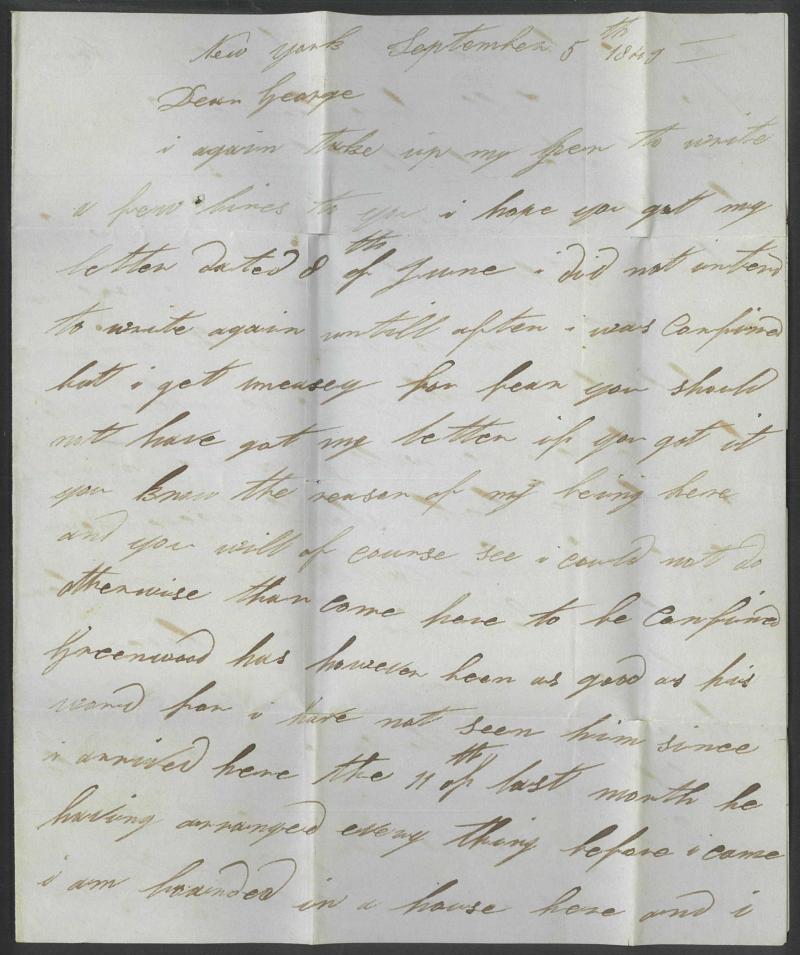 New York September 5th 1849
Dear George
i again take up my pen to write
a few lines to you i hope you got my
letter dated 8th of June i did not intend
to write again untill after i was Confined
but i get uneasey for fear you should
not have got my letter if you got it
you know the reason of my being here
and you will of course see i could not do
otherwise than come here to be Confined
Greenwood has however been as good as his
word for i have not seen him since
i arrived here the 11th of last month he
having arranged every thing before i came
i am boarded in a house here and i